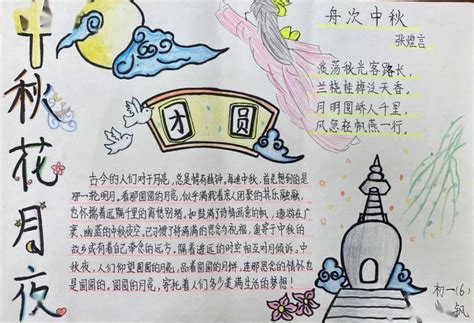 中秋花月夜
舟次中秋
张煌言
淡荡秋光客路长，
兰桡桂棹泛天香。
月明圆峤人千里，
风急轻帆燕一行。
团圆
古今的人们对于月亮，总是情有独钟，每逢中秋，首先想到的是
那一轮明月。看那圆圆的月亮，似乎满载着亲人团聚的其乐融融，
也怀揣着远隔千里的离愁别绪，如鼓满了诗情画意的帆，遨游在广
袤、幽蓝的中秋夜空，已习惯了将满满的思念与祝福，遥寄于中秋的
故乡或有着自己牵念的远方，隔着遥远的时空相互对月倾诉。中
秋夜，人们仰望圆圆的月亮，品着圆圆的月饼，连那思念的情怀也
是圆圆的。圆圆的月亮，寄托着人们多少美满生活的梦想！
初一（6）